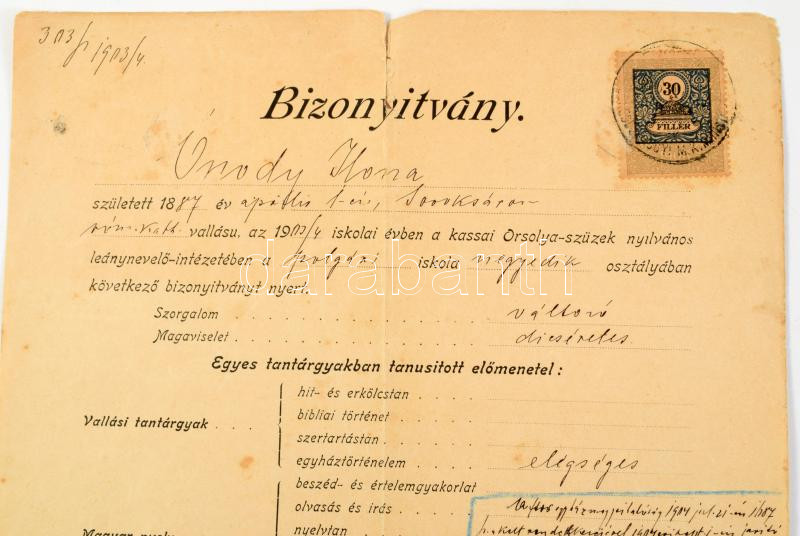 303/1903/4.
Bizonyitvány.
30
FILLÉR
Ónody Ilona
született 1887 év április 1-én, Soroksáron
róm. kath. vallásu, az 1903/4 iskolai évben a kassai Orsolya-szüzek nyilvános
leánynevelő-intézetében a polgári iskola negyedik osztályában
következő bizonyitványt nyert.
darabanth
Szorgalom változó
Magaviselet dicséretes
Egyes tantárgyakban tanusitott előmenetel:
hit- és erkölcstan
bibliai történet
Vallási tantárgyak
szertartástan
egyháztörténelem elégséges
beszéd- és értelemgyakorlat
olvasás és irás
nyelvtan
1904